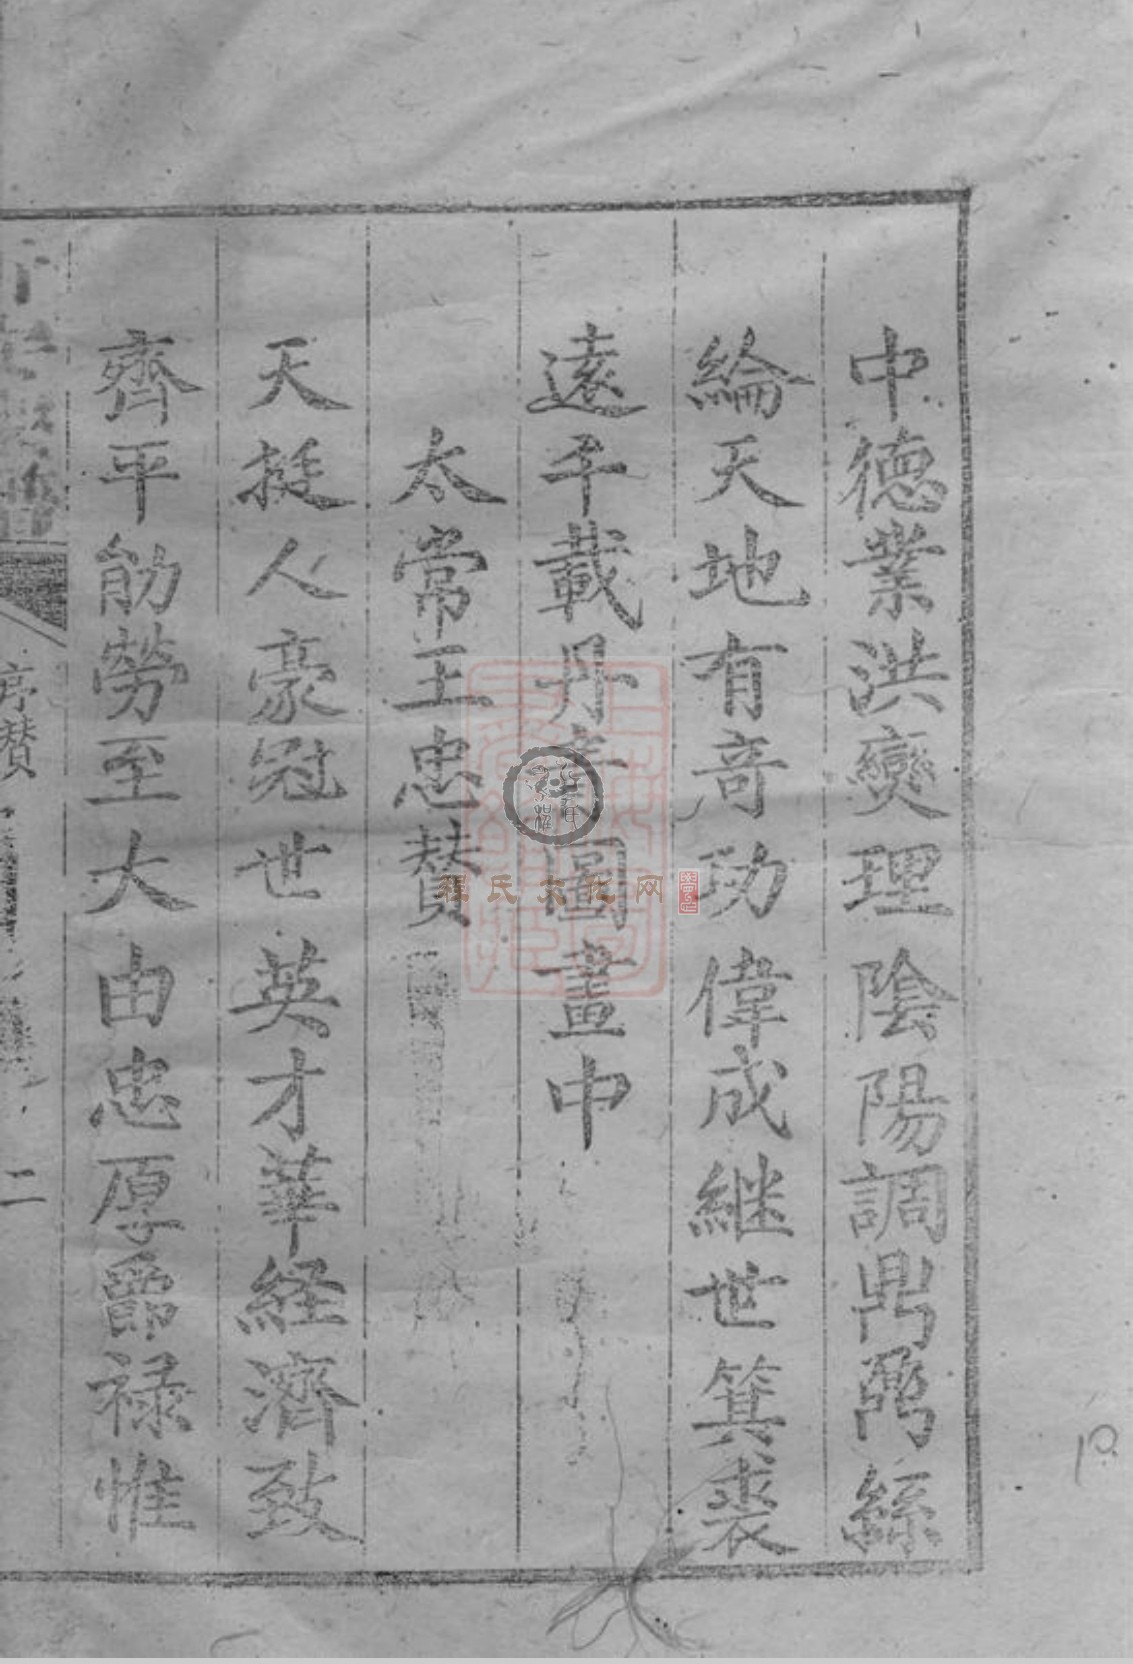 中德業洪燮理陰陽調鼎鼐絲
綸天地有奇功偉成継世箕裘
遠千載丹青圖畫中
太常王忠賛
天挺人豪冠世英才華経濟致
齊平劬勞至大由忠厚爵禄惟
序賛
二
程氏文化网